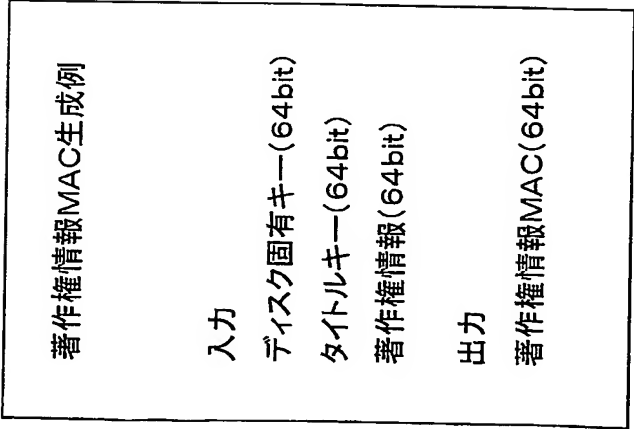 著作権情報MAC生成例
入力
ディスク固有キー(64bit)
タイトルキー(64bit)
著作権情報(64bit)
出力
著作権情報MAC(64bit)